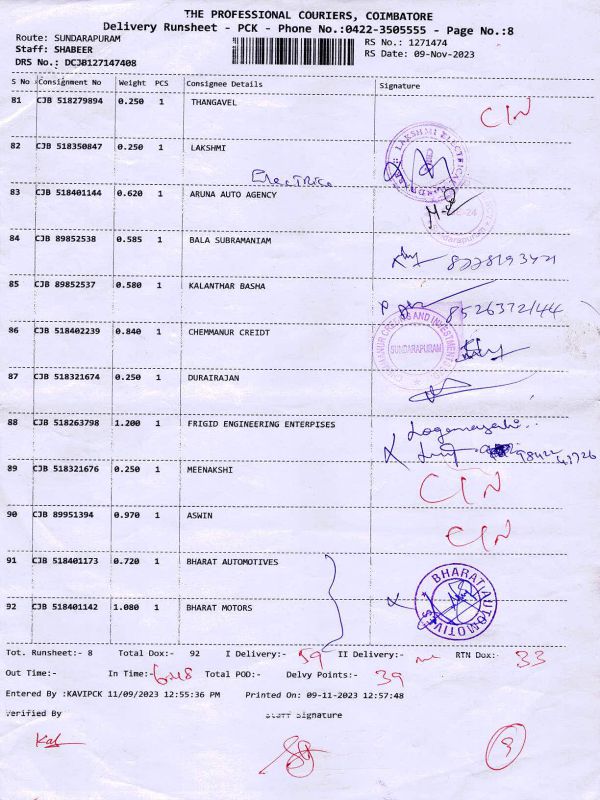 THE PROFESSIONAL COURIERS, COIMBATORE
Delivery Runsheet - PCK - Phone No.:0422-3505555 - Page No.:8
Route: SUNDARAPURAM RS No.: 1271474
Staff: SHABEER RS Date: 09-Nov-2023
DRS No.: DCJB127147408
S No Consignment No Weight PCS Consignee Details Signature
81 CJB 518279894 0.250 1 THANGAVEL CIN
82 CJB 518350847 0.250 1 LAKSHMI
LAKSHMI ELECTRIC
Electrics
83 CJB 518401144 0.620 1 ARUNA AUTO AGENCY
84 CJB 89852538 0.585 1 BALA SUBRAMANIAM
85 CJB 89852537 0.580 1 KALANTHAR BASHA 8526372144
86 CJB 518402239 0.840 1 CHEMMANUR CREIDT
SUNDARAPURAM
87 CJB 518321674 0.250 1 DURAIRAJAN
88 CJB 518263798 1.200 1 FRIGID ENGINEERING ENTERPISES
89 CJB 518321676 0.250 1 MEENAKSHI CIN
90 CJB 89951394 0.970 1 ASWIN CIN
91 CJB 518401173 0.720 1 BHARAT AUTOMOTIVES
BHARAT AUTOMOTIVES
92 CJB 518401142 1.080 1 BHARAT MOTORS
Tot. Runsheet:- 8 Total Dox:- 92 I Delivery:- 59 II Delivery:- RTN Dox:- 33
Out Time:- In Time:- Total POD:- Delvy Points:- 39
Entered By :KAVIPCK 11/09/2023 12:55:36 PM Printed On: 09-11-2023 12:57:48
Verified By Staff Signature
9